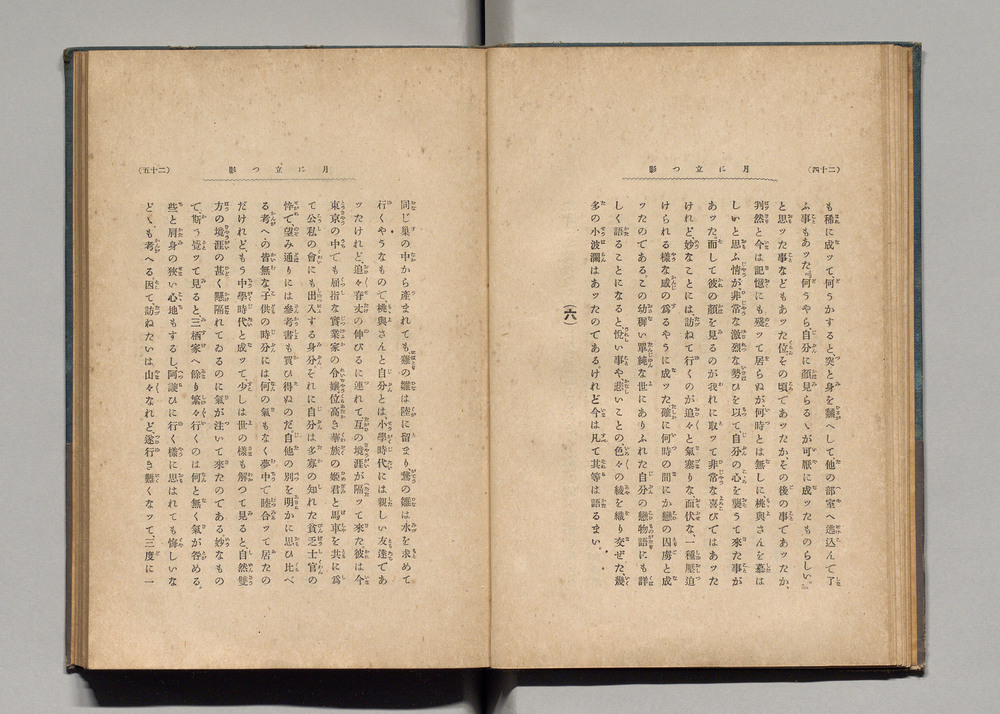 （二十四）
月に立つ影
も稀に成ッて何うかすると、突と身を飜へして他の部室へ逃込んで了
ふ事もあッた『何うやら自分に顔見らるゝが可厭に成ッたものらしい。』
と思ッた事などもあッた位、その頃であッたか、その後の事であッたか、
判然と今は記憶にも殘ッて居らぬが、何時とは無しに桃與さんを慕は
しいと思ふ情が、非常な激烈な勢ひを以て、自分の心を襲うて來た事が
あッた。而して彼の顔を見るのが我れに取ッて非常な喜びではあッた
けれど、妙なことには、訪ねて行くのが追々と氣塞りな、面伏な、一種壓迫
けられる樣な感の爲るやうに成ッた。確に何時の間にか戀の囚虜と成
ッたのである。この幼穉い單純な世にありふれた自分の戀物語にも、詳
しく語ることになると、悅い事や、悲いことの、色々の綾を織り交ぜた、幾
多の小波瀾はあッたのであるけれど、今は凡て其等は語るまい。
（六）
（二十五）
月に立つ影
同じ巢の中から產まれても、雞の雛は陸に留まり、鶩の雛は水を求めて
行くやうなもので、桃與さんと自分とは、小學時代には親しい友達であ
ッたけれど、追々脊丈の伸びるに連れて、互の境涯が隔ッて來た。彼は今
東京の中でも屈指な實業家の令孃、位高き華族の姬君と馬車を共に爲
て公私の會にも出入する身分、それに自分は多寡の知れた貧乏士官の
忰で、望み通りには參考書も買ひ得ぬのだ。自他の別を明かに思ひ比べ
る考への皆無な、子供の時分には、何の氣もなく夢中で睦合ッて居たの
だけれど、もう中學時代と成ッて少しは世の樣も解つて見ると、自然雙
方の境涯の甚く懸隔れてゐるのに氣が注いて來たのである。妙なもの
で、斯う覺ッて見ると、三栖家へ餘り繁々行くのは何と無く氣が咎める。
些と肩身の狹い心地もするし、阿諛ひに行く樣に思はれても悔しいな
どゝも考へる。因て訪ねたいは山々なれど、遂行き難くなッて、三度に一